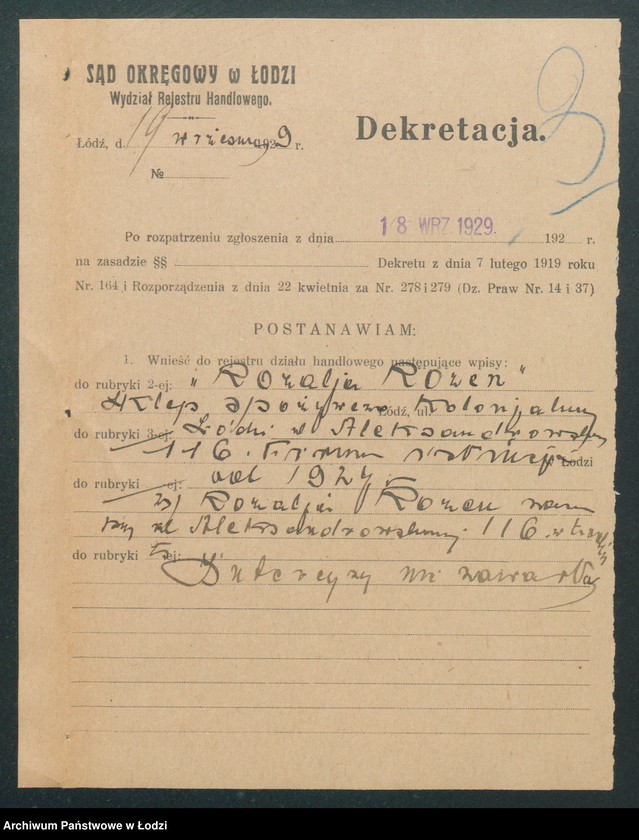 SĄD OKRĘGOWY w ŁODZI
Wydział Rejestru Handlowego.
Łódź, d. 19 września 1929 r.
Dekretacja.
3
№
Po rozpatrzeniu zgłoszenia z dnia 18 WRZ. 1929. 192 r.
na zasadzie §§ Dekretu z dnia 7 lutego 1919 roku
Nr. 164 i Rozporządzenia z dnia 22 kwietnia za Nr. 278 i 279 (Dz. Praw Nr. 14 i 37)
POSTANAWIAM:
1. Wnieść do rejestru działu handlowego następujące wpisy:
do rubryki 2-ej: "Rozalja Rozen"
Sklep spożywczo Kolonjalny
Łódź, ul.
do rubryki 3-ej: Łódź ul Aleksandrowska
116. Firma istnieje
w Łodzi
do rubryki ej: od 1927.
3) Rozalja Rozen zam
ul Aleksandrowskiej 116 w
do rubryki ej: Intercyzy nie zawarła
Archiwum Państwowe w Łodzi